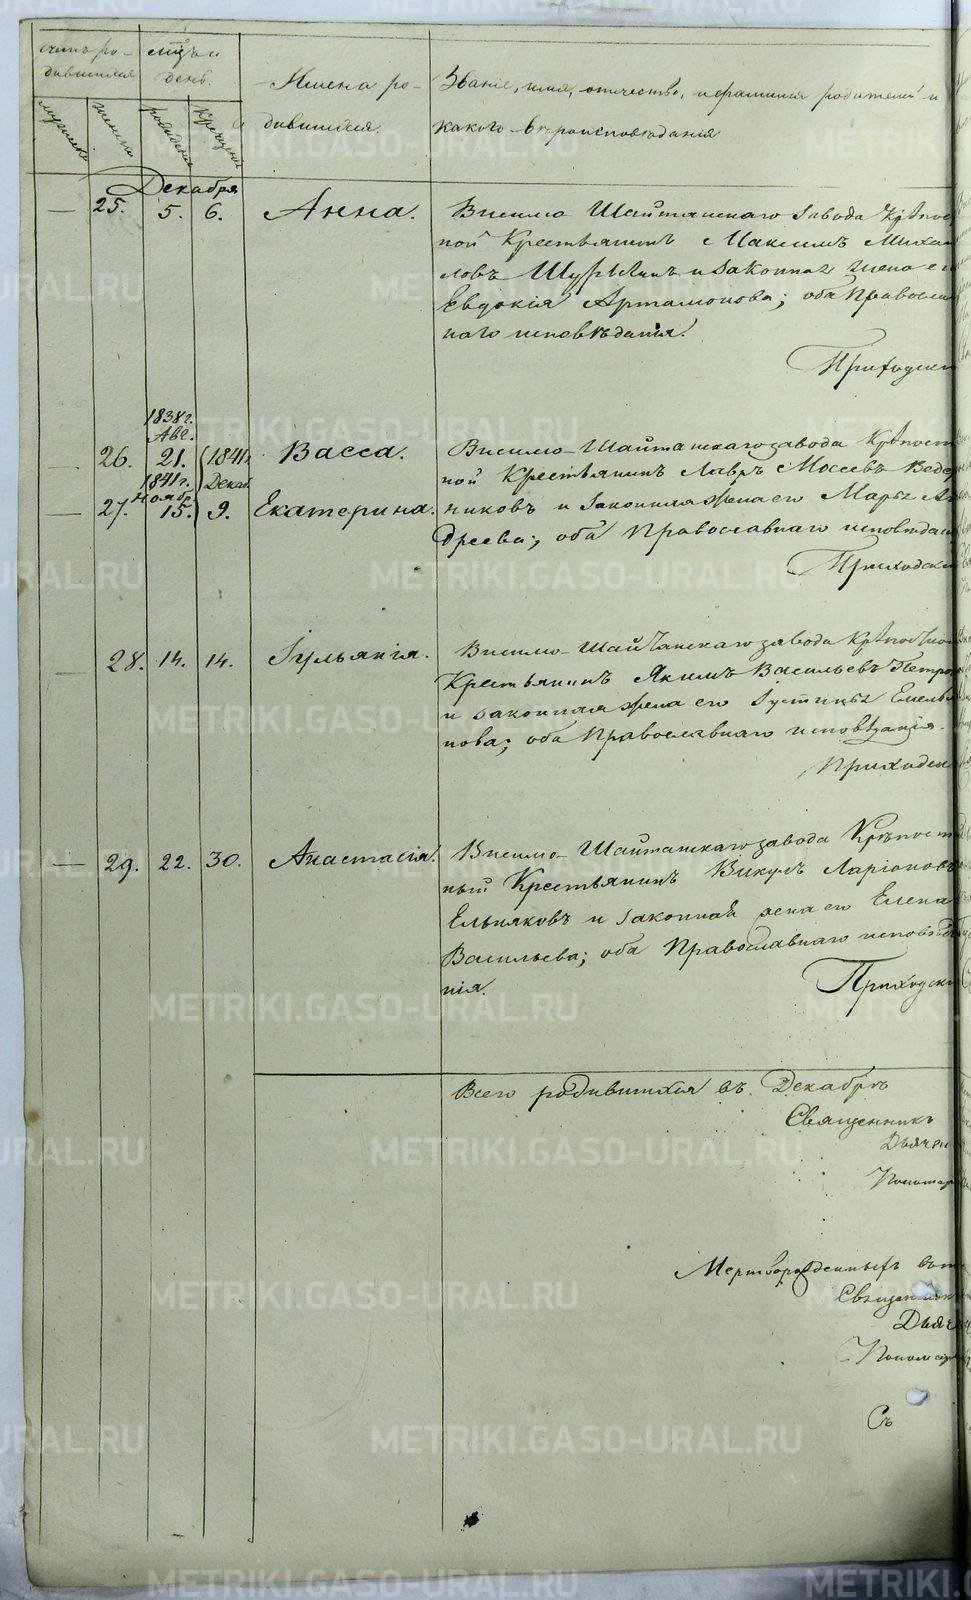 Счетъ ро-
дившихся
Мѣсяцъ и
день.
Имена ро-
дившихся.
Званіе, имя, отчество, и фамилія родителей и
какого вѣроисповѣданія
мужеска
женска
рожденія
крещенія
Декабря
— 25. 5. 6. Анна.
Висимо Шайтанскаго завода Крѣпос
ной Крестьянинъ Максимъ Михаи
ловъ и законная жена е
Евдокія Артамонова; оба Правосла
наго исповѣданія.
Приходск
1838 г.
Авг.
— 26. 21. (1841 Васса.
1841 г. Декаб.
Ноябр.
— 27. 15. 9. Екатерина.
Висимо-Шайтанскаго завода Крѣпост
ной Крестьянинъ Лавръ Мосеевъ Веде
никовъ и законная жена его Марья Ан
дреева; оба Православнаго исповѣда
Приходск
— 28. 14. 14. Іульянія.
Висимо-Шайтанскаго завода Крѣпостно
Крестьянинъ Якимъ Васильевъ Петро
и законная жена его Емелья
нова; оба Православнаго исповѣданія.
Приходск
— 29. 22. 30. Анастасія.
Висимо-Шайтанскаго завода Крѣпост
ный Крестьянинъ Викулъ Ларіоновъ
Ельняковъ и законная жена его Елена
Васильева; оба Православнаго исповѣда
нія.
Приходск
Всего родившихся въ Декабрѣ
Священникъ
Дьячек
Пономар
Мертворожденныхъ
Священник
Дьяч
Понома
Съ
METRIKI.GASO-URAL.RU